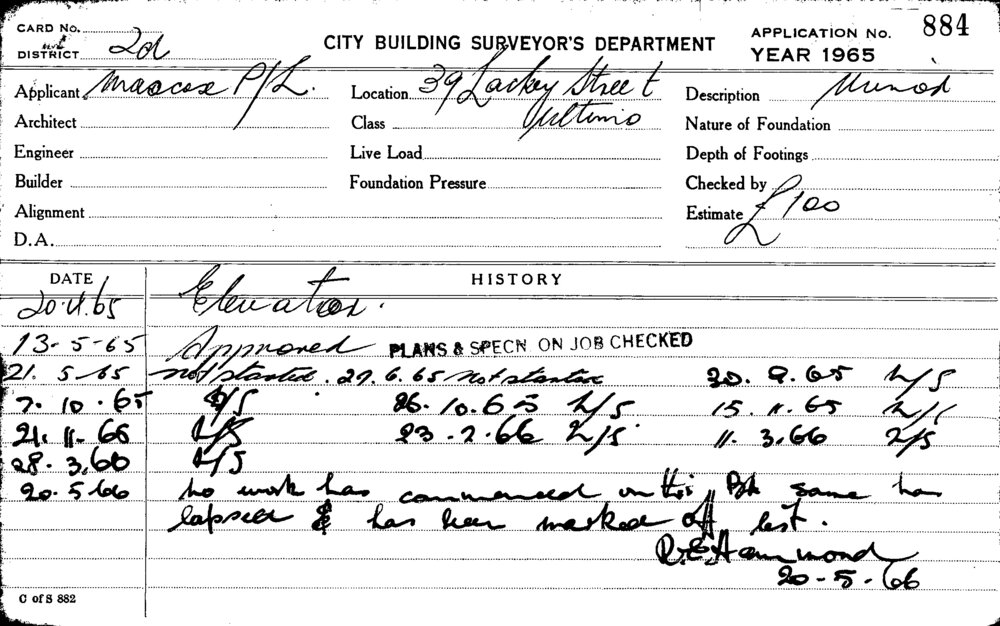 CARD No.
DISTRICT 2d
CITY BUILDING SURVEYOR'S DEPARTMENT
APPLICATION No. 884
YEAR 1965
Applicant P/L.
Location 39 Lackey Street
Ultimo
Description
Architect
Class
Nature of Foundation
Engineer
Live Load
Depth of Footings
Builder
Foundation Pressure
Checked by
Alignment
Estimate £100
D.A.
DATE HISTORY
20.4.65 Elevation.
13-5-65 Approved PLANS & SPECN ON JOB CHECKED
21. 5-65 not started. 29.6.65 Not started 30.9.65 N/S
7.10.65 N/S 26.10.65 N/S 15.11.65 N/S
21.11.65 N/S 23.2.66 N/S 11.3.66 N/S
28.3.66 N/S
20.5.66 No work has commenced on this same has
lapsed & has been marked off list.
R.E. Hammond
20-5-66
C of S 882